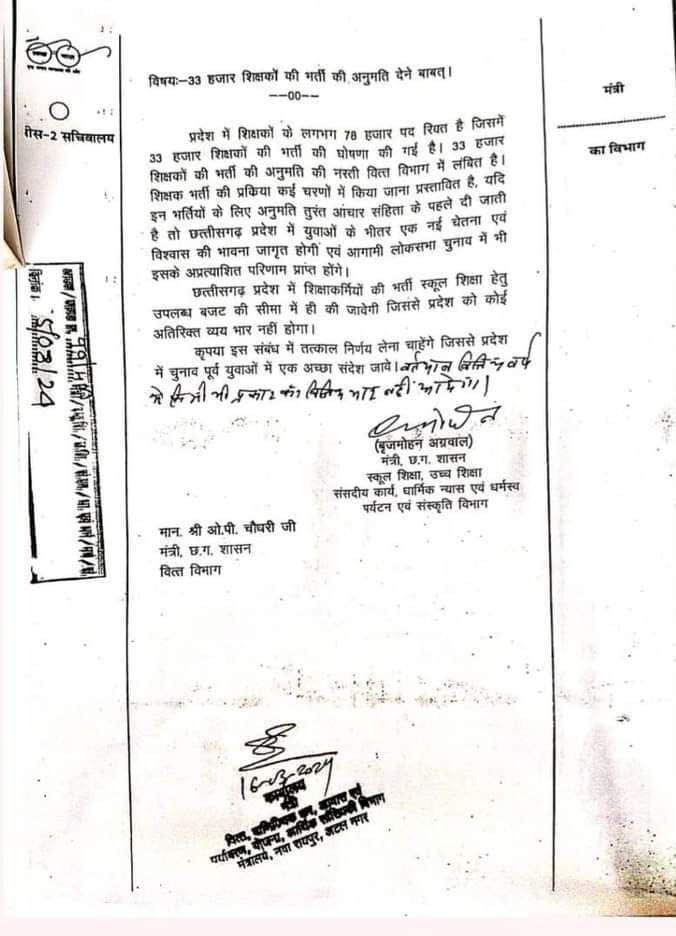 विषयः–33 हजार शिक्षकों की भर्ती की अनुमति देने बाबत्।
--00--
प्रदेश में शिक्षकों के लगभग 78 हजार पद रिक्त है जिसमें
33 हजार शिक्षकों की भर्ती की घोषणा की गई है। 33 हजार
शिक्षकों की भर्ती की अनुमति की नस्ती वित्त विभाग में लंबित है।
शिक्षक भर्ती की प्रक्रिया कई चरणों में किया जाना प्रस्तावित है, यदि
इन भर्तियों के लिए अनुमति तुरंत आचार संहिता के पहले दी जाती
है तो छत्तीसगढ़ प्रदेश में युवाओं के भीतर एक नई चेतना एवं
विश्वास की भावना जागृत होगीं एवं आगामी लोकसभा चुनाव में भी
इसके अप्रत्याशित परिणाम प्राप्त होंगे।
छत्तीसगढ़ प्रदेश में शिक्षाकर्मियों की भर्ती स्कूल शिक्षा हेतु
उपलब्ध बजट की सीमा में ही की जावेगी जिससे प्रदेश को कोई
अतिरिक्त व्यय भार नहीं होगा।
कृपया इस संबंध में तत्काल निर्णय लेना चाहेंगे जिससे प्रदेश
में चुनाव पूर्व युवाओं में एक अच्छा संदेश जावे। वर्तमान वित्तिय वर्ष
में किसी भी प्रकार का वित्तिय भार नहीं आवेगा।
(बृजमोहन अग्रवाल)
मंत्री, छ.ग. शासन
स्कूल शिक्षा, उच्च शिक्षा
संसदीय कार्य, धार्मिक न्यास एवं धर्मस्व
पर्यटन एवं संस्कृति विभाग
मान. श्री ओ.पी. चौधरी जी
मंत्री, छ.ग. शासन
वित्त विभाग
मंत्री
का विभाग
सचिवालय
5/03/24
16-03-2024
कार्यालय
मंत्री
वित्त, वाणिज्यिक कर, आवास एवं
पर्यावरण, योजना, आर्थिक सांख्यिकी विभाग
मंत्रालय, नवा रायपुर, अटल नगर